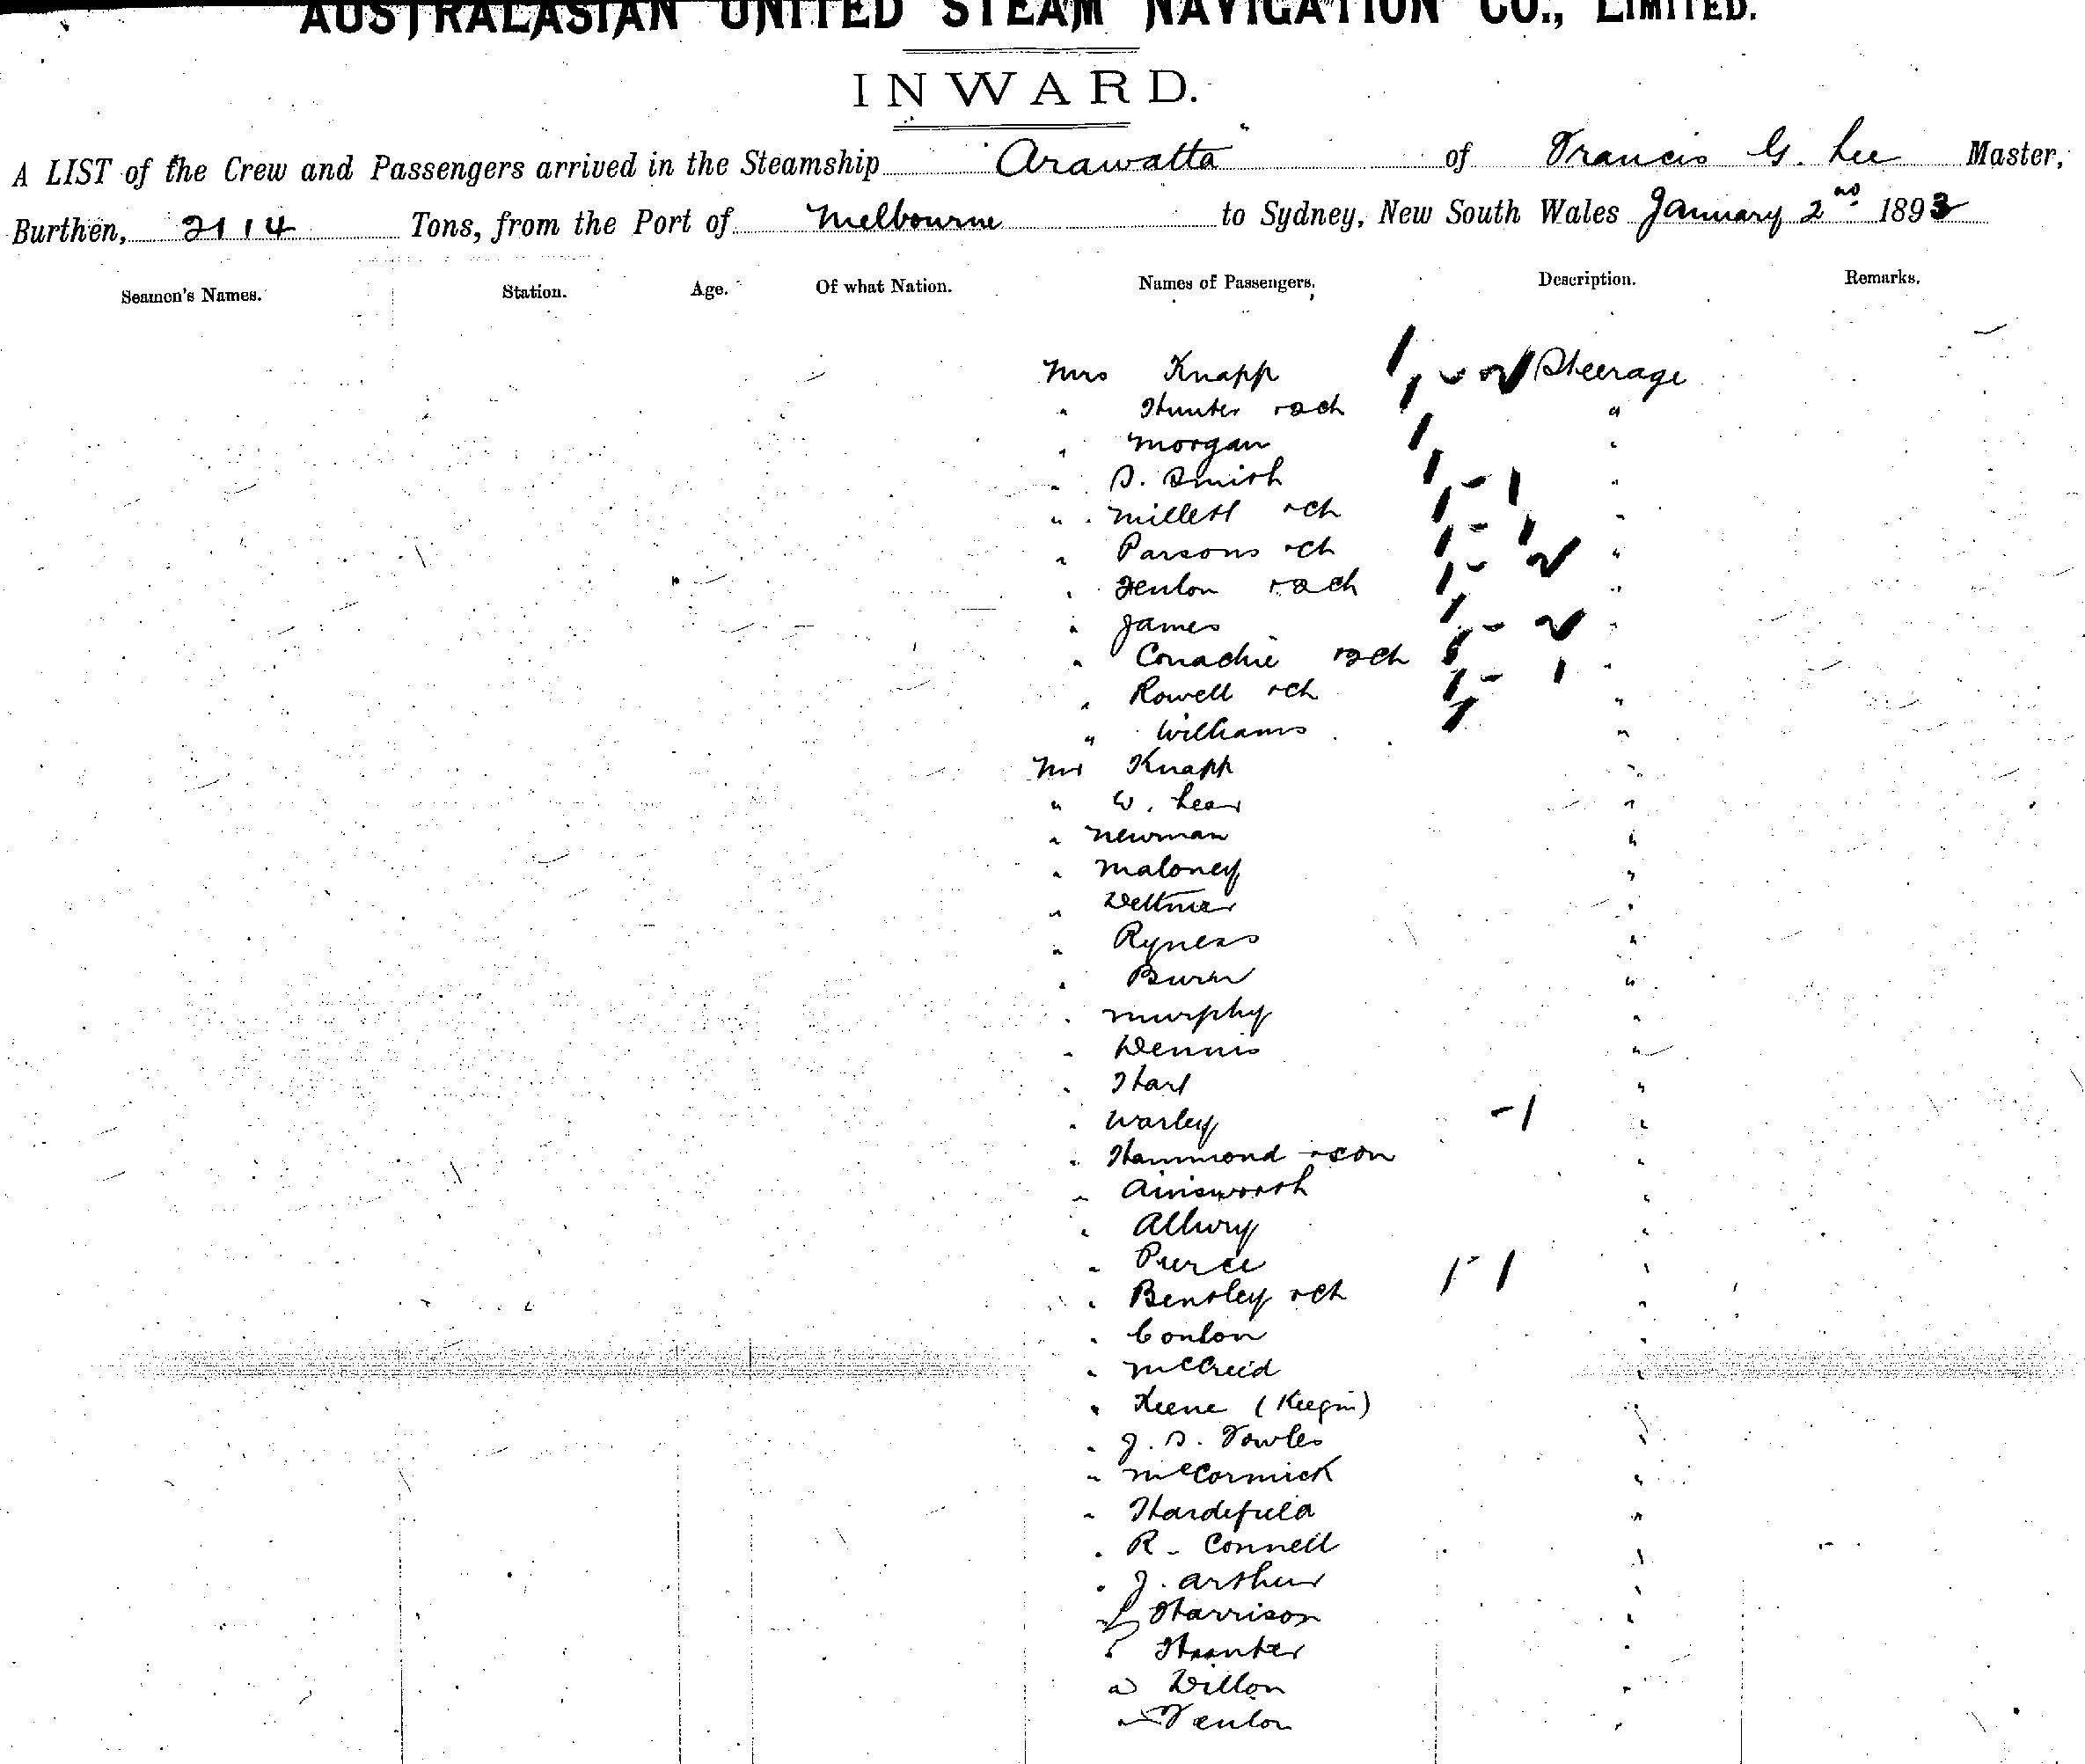 AUSTRALASIAN UNITED STEAM NAVIGATION CO., LIMITED.
INWARD.
A LIST of the Crew and Passengers arrived in the Steamship "Arawatta" of Francis G. Lee Master,
Burthen, 2114 Tons, from the Port of Melbourne to Sydney, New South Wales January 2nd 1893
Seamen's Names. Station. Age. Of what Nation. Names of Passengers. Description. Remarks.
Mrs Knapp Steerage
" Hunter + 2 ch "
" Morgan "
" S. Smith "
" Millett + ch "
" Parsons + ch "
" Fenlon + 2 ch "
" James "
" Conachie + 2 ch "
" Rowell + ch "
" Williams "
Mr Knapp "
" W. Lear "
" Newman "
" Maloney "
" Dettmer "
" Ryness "
" Burn "
" Murphy "
" Dennis "
" Hart "
" Warley "
" Hammond + son "
" Ainsworth "
" Allwry "
" Pierce "
" Bensley + ch "
" Conlon "
" McCreid "
" Keene (Keegin) "
" J. S. Fowles "
" McCormick "
" Hardefield "
" R. Connell "
" J. Arthur "
" Harrison "
" Hunter "
" Dillon "
" Fenlon "